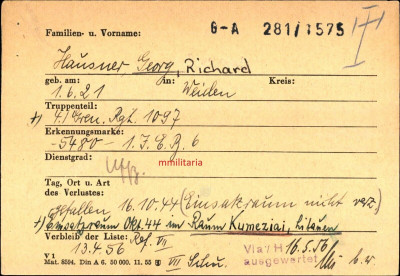 Familien- u. Vorname: G-A 281/1575
Hausner Georg, Richard
geb. am: in: Kreis:
1.6.21 Weiden
Truppenteil:
+) 4./Gren. Rgt. 1097
Erkennungsmarke:
-5480- 1. J.E.B. 6
Dienstgrad:
mmilitaria
Tag, Ort u. Art
des Verlustes:
gefallen 16.10.44 (Einsatzraum nicht verz.)
+) Einsatzraum Okt. 44 im Raum Kumeziai, Litauen
Verbleib der Liste: Ref. VII 16.5.56
13.4.56 VII
ausgewertet
V 1
Mat. 8594. Din A 6. 50 000. 11. 55